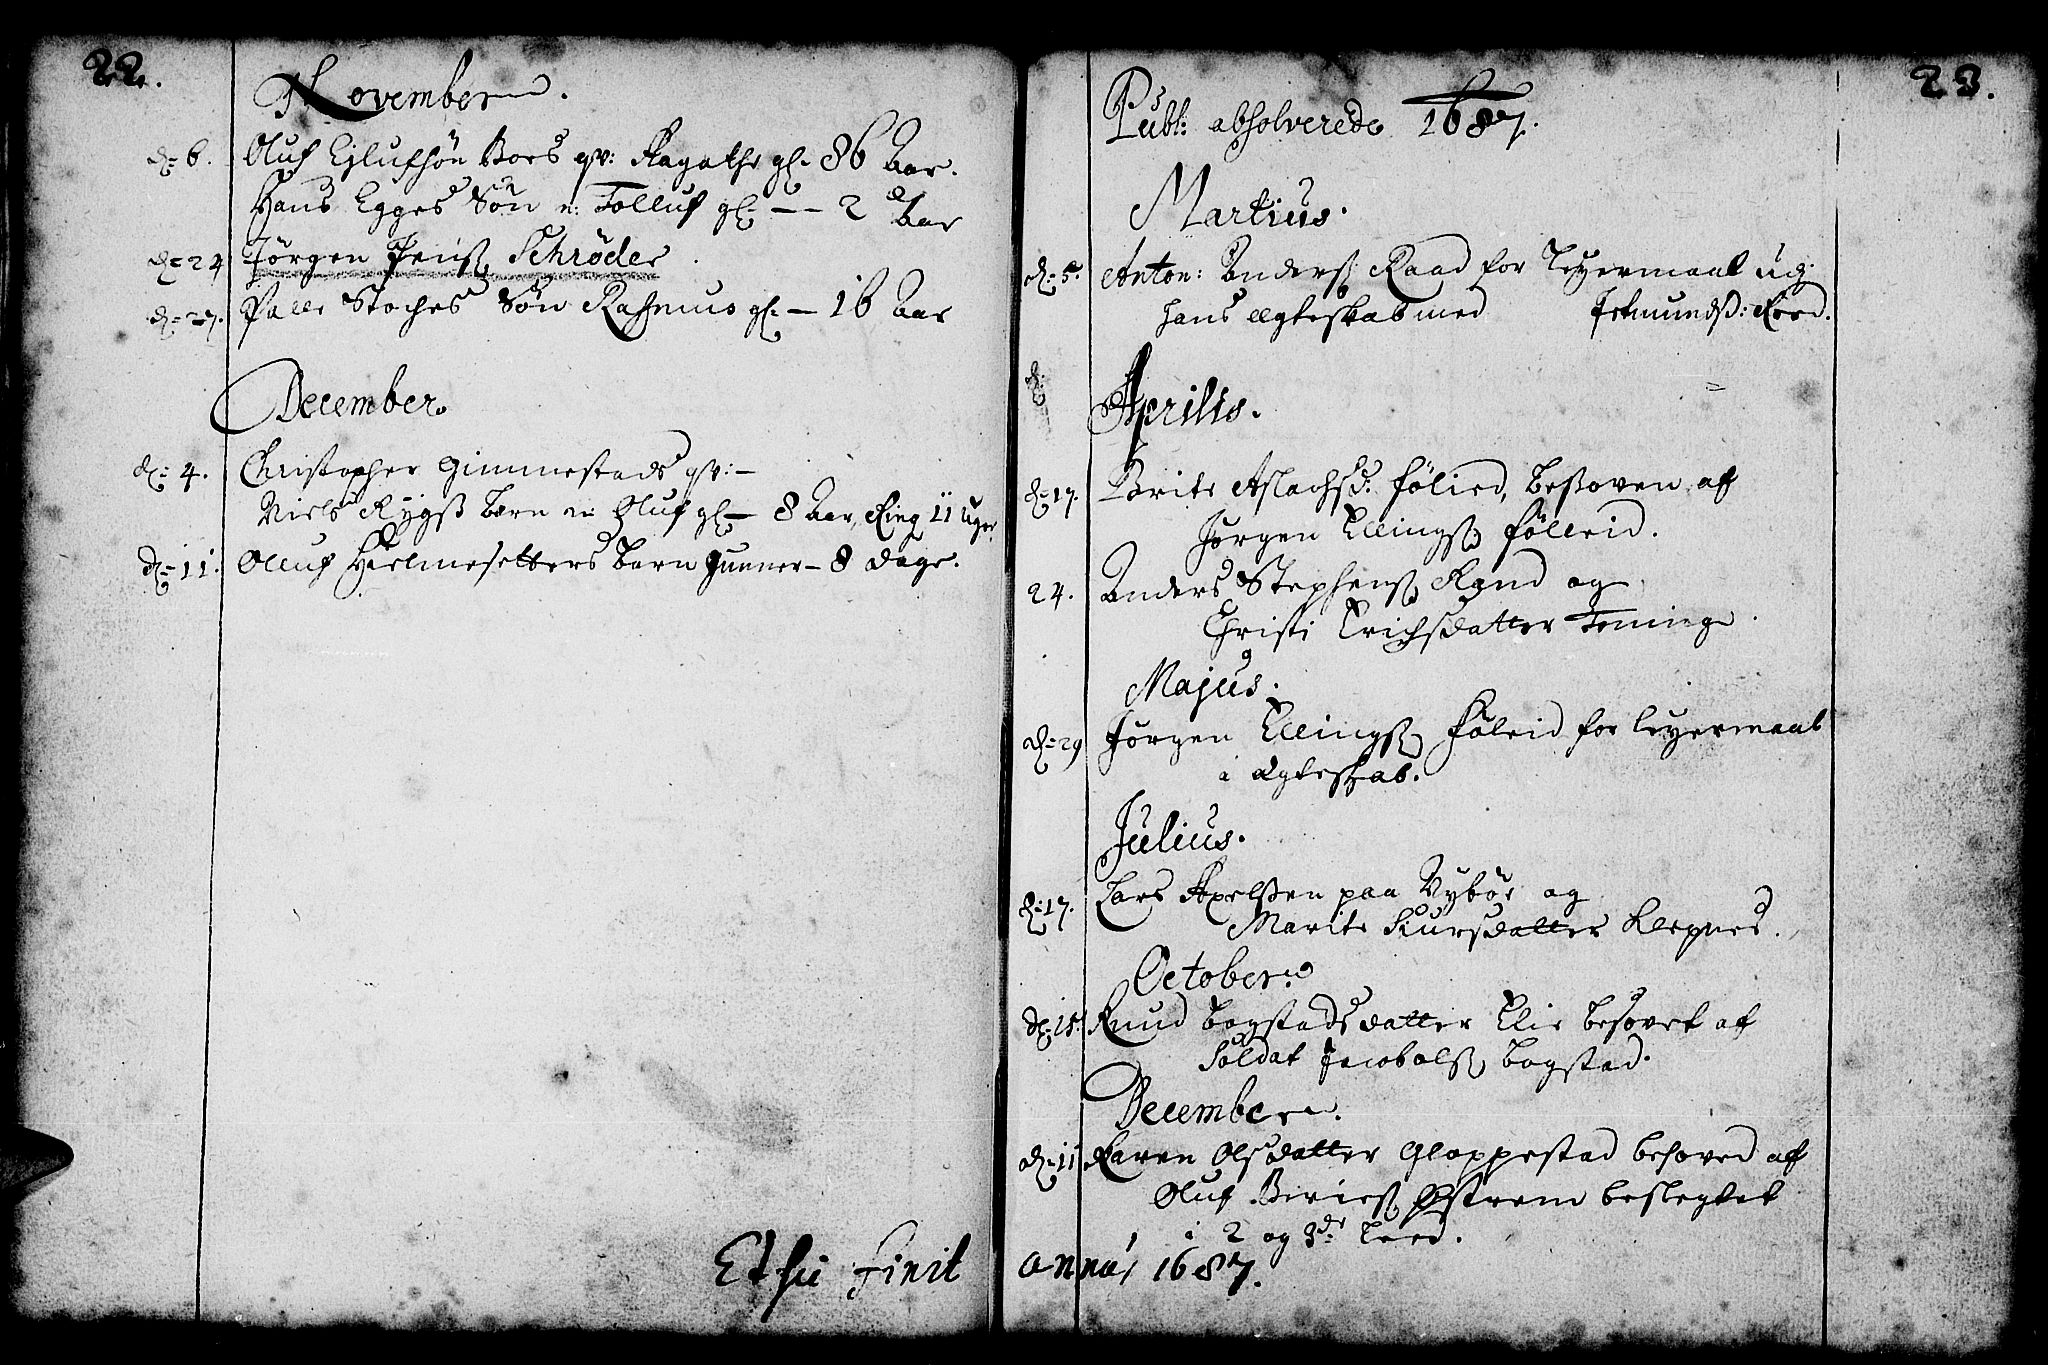 22.
November.
d: 6. Oluf Ejlufsøn Boes qv: Ragathe gl. 86 Aar.
Hans Egges Søn n: Tolluf gl: — 2 Aar
d: 24 Jørgen Jenss. Schrøder.
d: 27. Palle Stoches Søn Rasmus gl: — 16 Aar
December.
d: 4. Christopher Gimmestads qv: —
Niels Rygss barn n: Oluf gl — 8 Aar, Eing 11 Uger
d: 11. Oluf Hielmesetters barn Gunner — 8 dage.
Et sic finit
23.
Publ: absolverede 1687.
Martius.
d: 5. Anton: Anderss. Raad for Leyermaal ud
hans ægteskab med Jetmundss:
Aprilis.
d: 17. Brite Aslachsd. Føleid, besoven af
Jørgen Ellingss. Følleid.
24. Anders Stephenss. Rand og
Christi Erichsdatter
Majus.
d: 29 Jørgen Ellingss. Føleid for leyermaal
i ægteskab.
Julius.
d: 17. Lars Axelssen paa Nybøe og
Marite Siursdatter
October.
d: 15. Knud Bogstads datter Elie besovet af
Soldat Jacob Olss. Bogstad.
December.
d: 11 Karen Olsdatter Gloppestad besoved af
Oluf Østrem beslegtet
i 2 og 3de Leed.
anno, 1687.